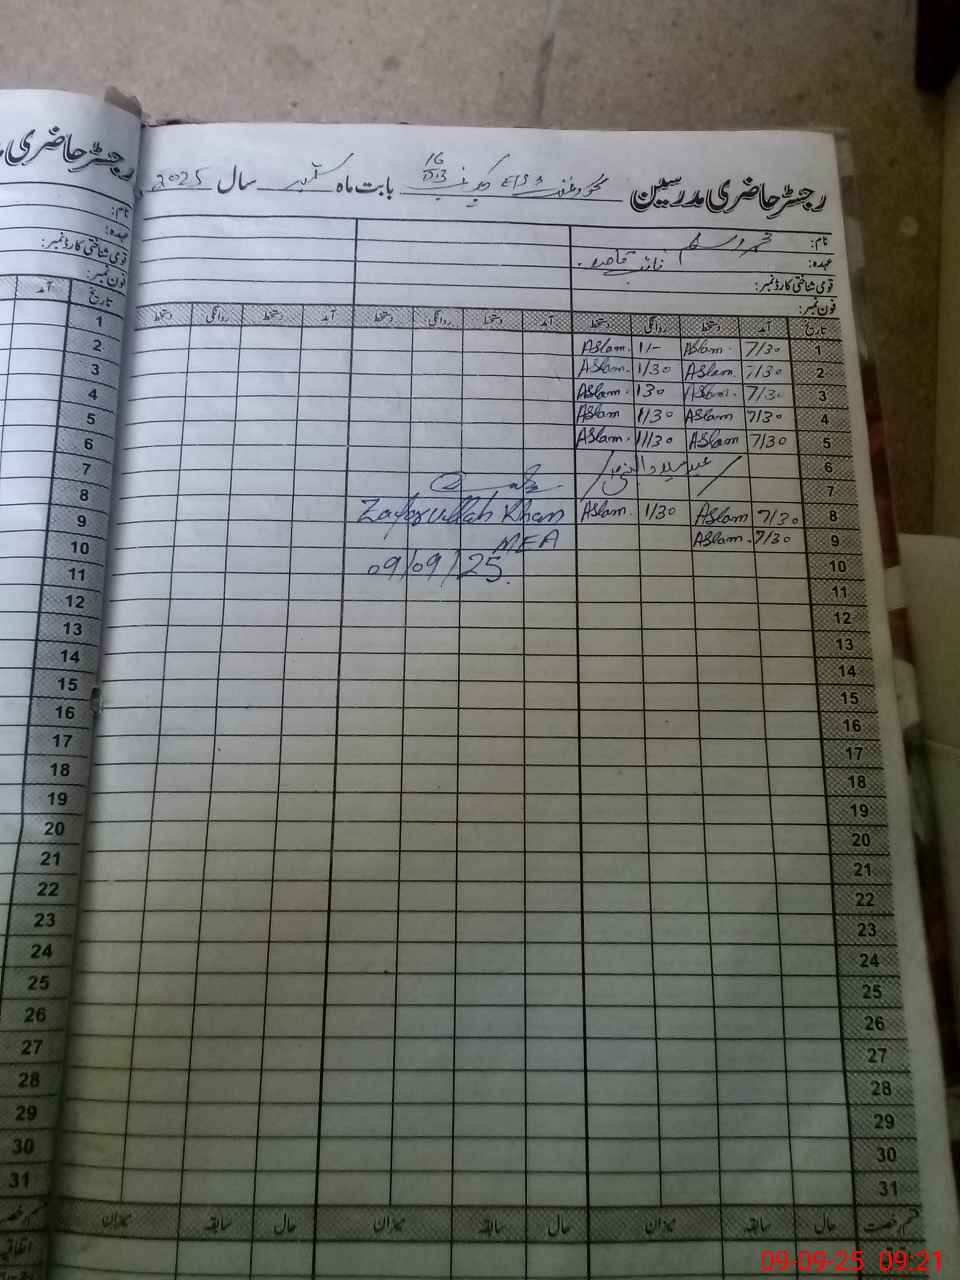 رجسٹر حاضری مدرسین
16
بابت ماہ ستمبر سال 2025
رجسٹر حاضری
نام: محمد اسلم
عہدہ: نائب قاصد
قومی شناختی کارڈ نمبر:
فون نمبر:
نام:
عہدہ:
قومی شناختی کارڈ نمبر:
فون نمبر:
تاریخ آمد دستخط روانگی دستخط آمد دستخط روانگی دستخط آمد دستخط روانگی دستخط
تاریخ آمد
1 7/30 Aslam. 1/- Aslam.
2 7/30 Aslam. 1/30 Aslam.
3 7/30 Aslam. 130 Aslam.
4 7/30 Aslam 1/30 Aslam
5 7/30 Aslam 1/30 Aslam.
6 عید میلاد النبی
7
8 7/30 Aslam 1/30 Aslam.
9 7/30 Aslam.
Zafarullah Khan
MEA
09/09/25.
10
11
12
13
14
15
16
17
18
19
20
21
22
23
24
25
26
27
28
29
30
31
1
2
3
4
5
6
7
8
9
10
11
12
13
14
15
16
17
18
19
20
21
22
23
24
25
26
27
28
29
30
31
قسم رخصت حال سابقہ میزان حال سابقہ میزان حال سابقہ میزان
اتفاقیہ
09-09-25 09:21